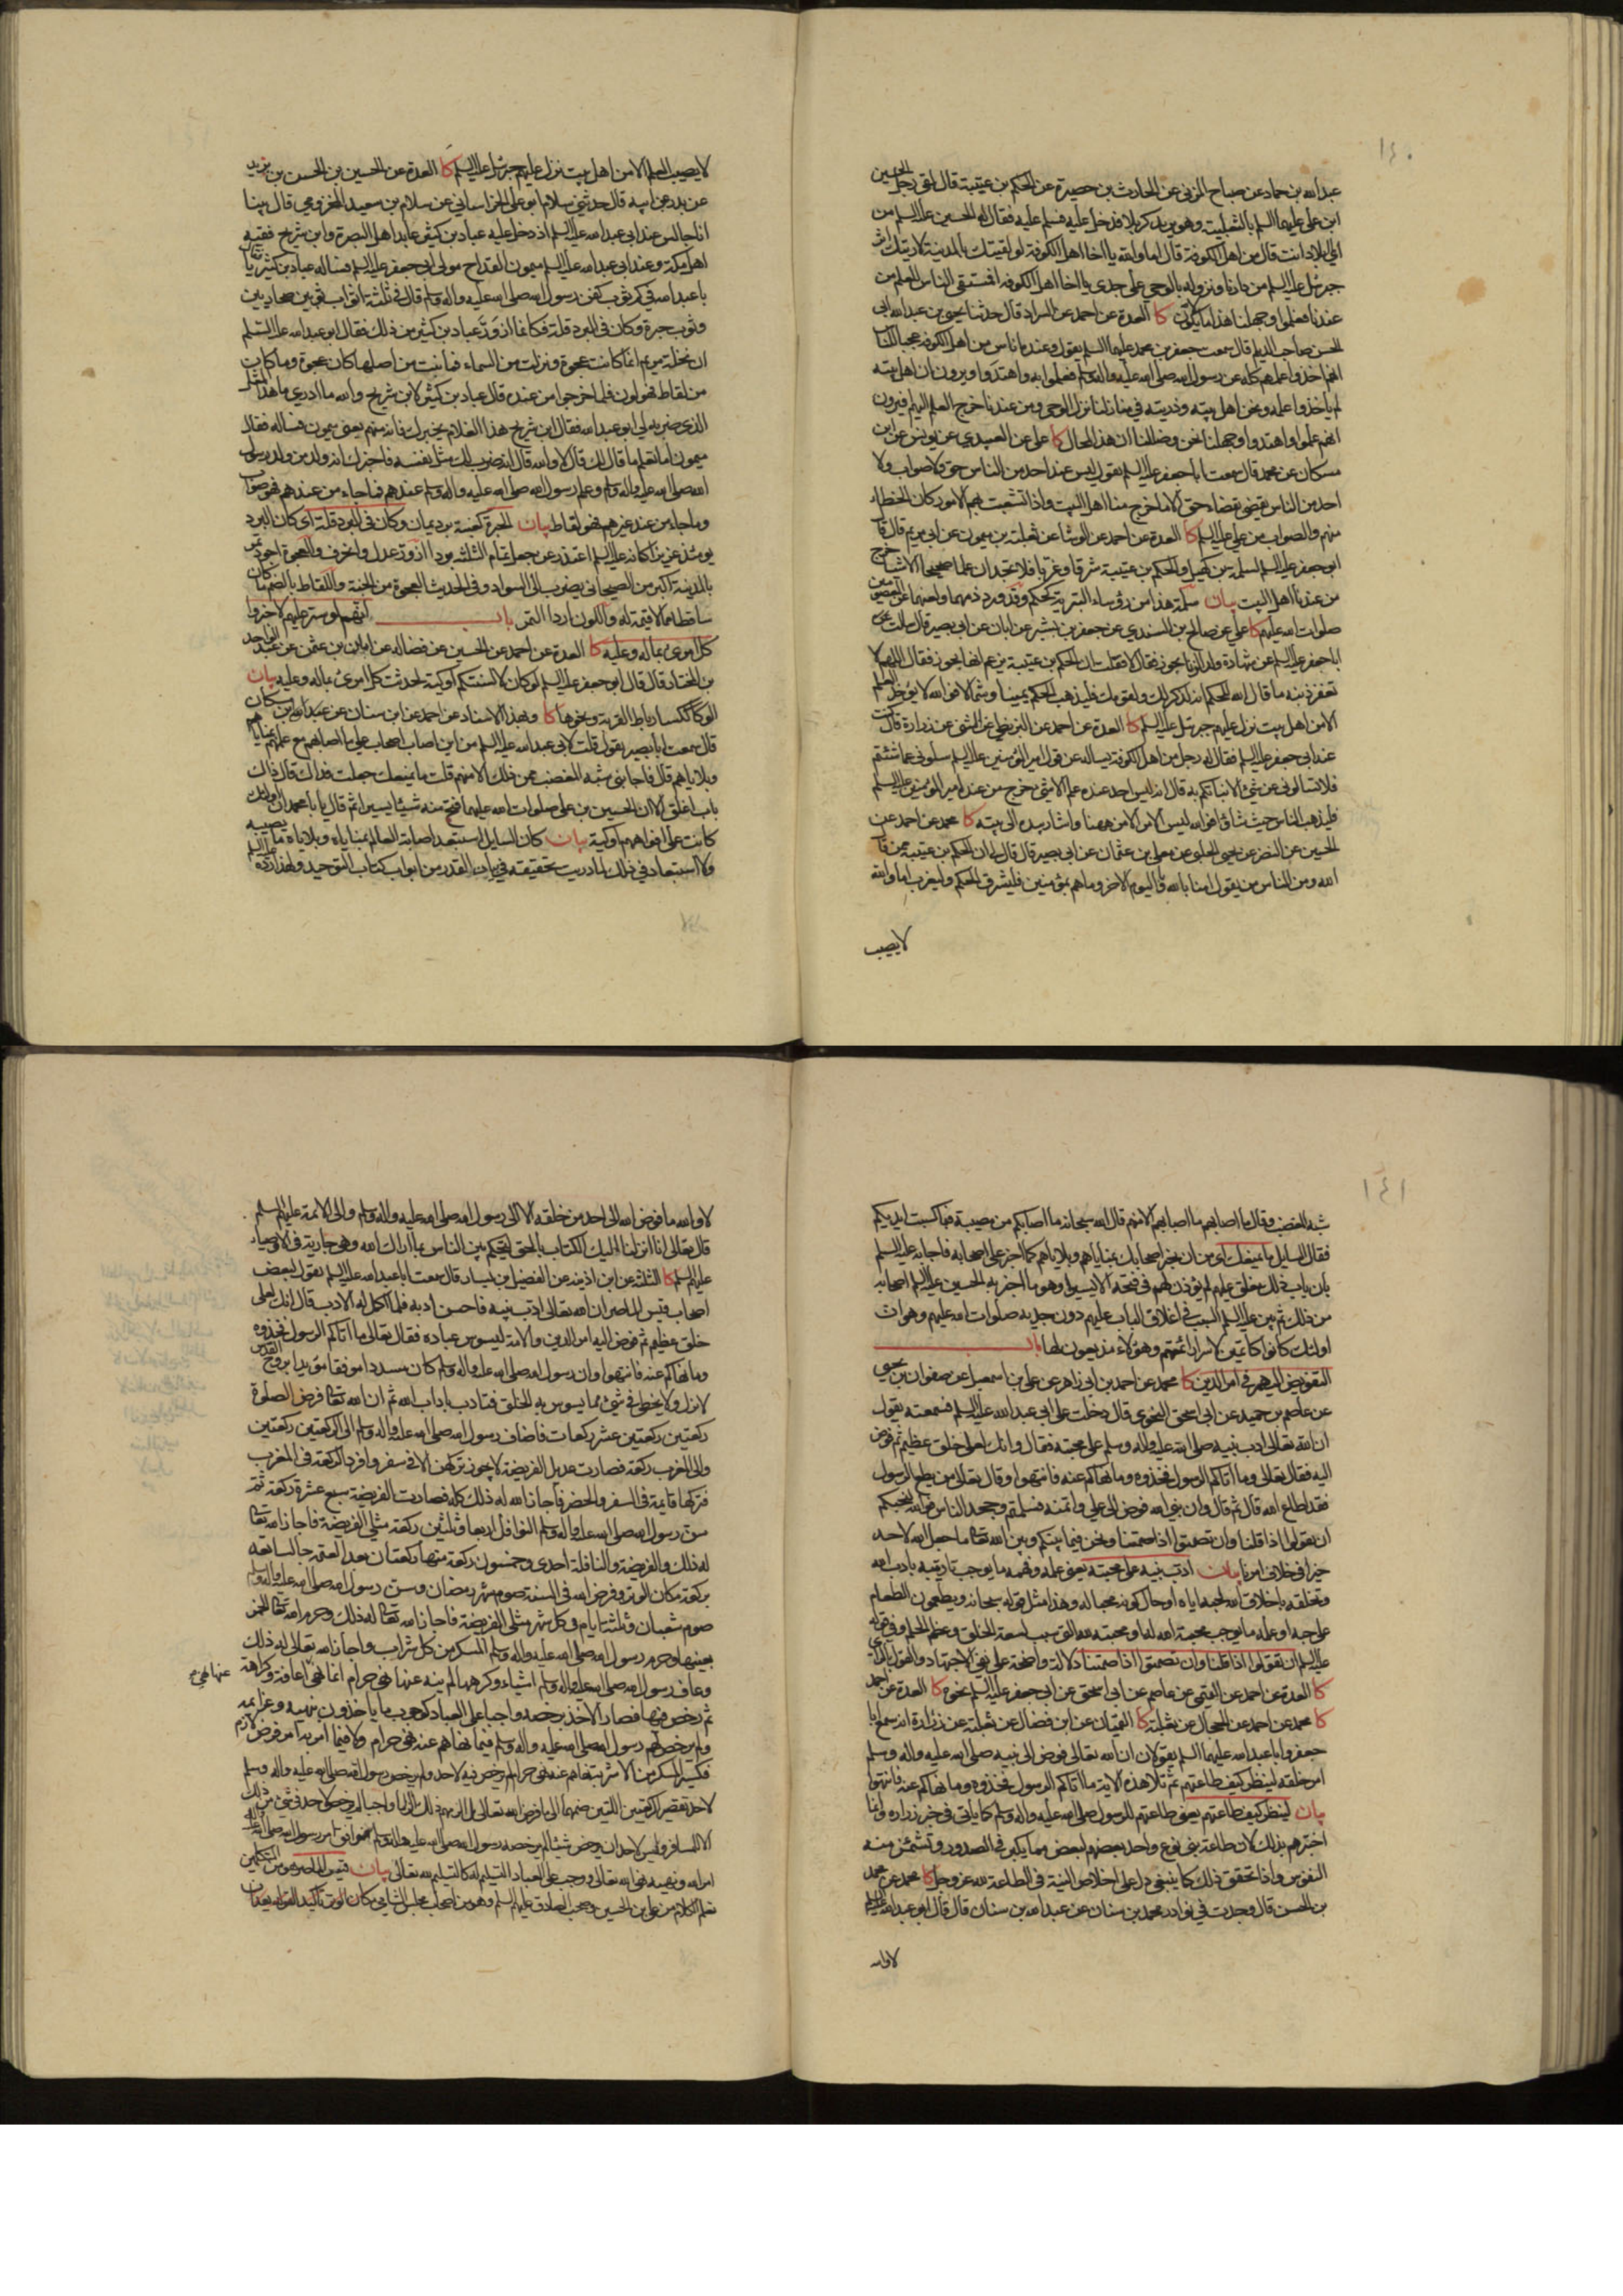 ١٤٠
عبدالله بن حماد عن صباح المزنى عن الحارث بن حصيرة عن الحكم بن عتيبة قال لقى رجل الحسين
ابن على عليهما السلم بالثعلبية وهو يريد كربلا فدخل عليه فسلم عليه فقال له الحسين عليه السلم من
اى البلاد انت قال من اهل الكوفة قال اما والله يا اخا اهل الكوفة لو لقيتك بالمدينة لاريتك اثر
جبرئيل عليه السلم من دارنا ونزوله بالوحى على جدى يا اخا اهل الكوفه افمستقى الناس العلم من
عندنا فعلموا وجهلنا هذا ما لا يكون كا العدة عن احمد عن السراد قال حدثنا يحيى بن عبدالله ابى
الحسن صاحب الديلم قال سمعت جعفر بن محمد عليهما السلم يقول وعنده اناس من اهل الكوفه عجبا للناس
انهم اخذوا علمهم كله عن رسول الله صلى الله عليه واله وسلم فعملوا به واهتدوا ويرون ان اهل بيته
لم ياخذوا علمه ونحن اهل بيته وذريته فى منازلنا نزل الوحى ومن عندنا خرج العلم اليهم فيرون
انهم علموا واهتدوا وجهلنا نحن وضللنا ان هذا لمحال كا على عن العبيدى عن يونس عن ابن
مسكان عن محمد قال سمعت ابا جعفر عليه السلم يقول ليس عند احد من الناس حق ولا صواب ولا
احد من الناس يقضى بقضاء حق الا ما خرج منا اهل البيت واذا تشعبت بهم الامور كان الخطاء
منهم والصواب من على عليه السلم كا العدة عن احمد عن الوشا عن ثعلبة بن ميمون عن ابى مريم قال قا
ابو جعفر عليه السلم لسلمة بن كهيل والحكم بن عتيبة شرقا وغربا فلا تجدان علما صحيحا الا شيئا خرج
من عندنا اهل البيت بيان سلمة هذا من رؤساء البترية كحكم وقد ورد ذمهما ولعنهما عن المعصومين
صلوات الله عليهم كا على عن صالح بن السندى عن جعفر بن بشير عن ابان عن ابى بصير قال سالت
ابا جعفر عليه السلم عن شهادة ولد الزنا يجوز فقال لا فقلت ان الحكم بن عتيبة يزعم انها تجوز فقال اللهم لا
تغفر ذنبه ما قال الله للحكم انه لذكر لك ولقومك فليذهب الحكم يمينا وشمالا فوالله لا يؤخذ العلم
الا من اهل بيت نزل عليهم جبرئيل عليه السلم كا العدة عن احمد عن البزنطى عن المثنى عن زرارة قال كنت
عند ابى جعفر عليه السلم فقال له رجل من اهل الكوفة يساله عن قول امير المؤمنين عليه السلم سلونى عما شئتم
فلا تسالونى عن شئ الا انباتكم به قال انه ليس احد عنده علم الا شئ خرج من عند امير المؤمنين عليه السلم
فليذهب الناس حيث شاؤا فوالله ليس الامر الا من ههنا واشار بيده الى بيته كا محمد عن احمد عن
الحسين عن النضر عن يحيى الحلبى عن معلى بن عثمان عن ابى بصير قال قال لى ان الحكم بن عتيبة ممن قا
الله ومن الناس من يقول امنا بالله وباليوم الاخر وما هم بمؤمنين فليشرق الحكم وليغرب اما والله
لا يصيب
لا يصيب العلم الا من اهل بيت نزل عليهم جبرئيل عليه السلم كا العدة عن الحسين بن الحسن بن يزيد
عن بدر عن ابيه قال حدثنى سلام ابو على الخراسانى عن سلام بن سعيد المخزومى قال بينا
انا جالس عند ابى عبدالله عليه السلم اذ دخل عليه عباد بن كثير عابد اهل البصرة وابن شريح فقيه
اهل مكة وعند ابى عبدالله عليه السلم ميمون القداح مولى ابى جعفر عليه السلم فساله عباد بن كثير فقال يا
با عبدالله فى كم ثوب كفن رسول الله صلى الله عليه واله وسلم قال فى ثلثة اثواب ثوبين صحاريين
وثوب حبرة وكان فى البرد قلة فكانما ازورّ عباد بن كثير من ذلك فقال ابو عبدالله عليه السلم
ان نخلة مريم انما كانت عجوة ونزلت من السماء فما نبت من اصلها كان عجوة وما كان
من لقاط فهو لون فلما خرجوا من عنده قال عباد بن كثير لابن شريح والله ما ادرى ما هذا المثل
الذى ضربه لى ابو عبدالله فقال ابن شريح هذا الغلام يخبرك فانه منهم يعنى ميمون فساله فقال
ميمون اما تعلم ما قال لك قال لا والله قال انه ضرب لك مثل نفسه فاخبرك انه ولد من ولد رسول
الله صلى الله عليه واله وسلم وعلم رسول الله صلى الله عليه واله وسلم عندهم فما جاء من عندهم فهو صواب
وما جاء من عند غيرهم فهو لقاط بيان الحبرة كعنبة برد يمان وكان فى البرد قلة اى كان البرد
يومئذ عزيزا كانه عليه السلم اعتذر عن جعل تمام الثلثة برودا ازورّ عدل وانحرف والعجوة اجود تمر
بالمدينة اكبر من الصيحانى يضرب الى السواد وفى الحديث العجوة من الجنة واللقاط بالضم ما كان
ساقطا مما لا قيمة له واللون اردا التمر باب انهم لو ستر عليهم لاخبروا
كل امرئ بما له وعليه كا العدة عن احمد عن الحسين عن فضاله عن ابان بن عثمن عن عبد الواحد
بن المختار قال قال ابو جعفر عليه السلم لو كان لالسنتكم اوكية لحدثت كل امرئ بما له وعليه بيان
الوكا ككساء رباط القربة ونحوها كا وبهذا الاسناد عن احمد عن ابن سنان عن عبدالله بن مسكان
قال سمعت ابا بصير يقول قلت لابى عبدالله عليه السلم من اين اصاب اصحاب على ما اصابهم مع علمهم بمناياهم
وبلاياهم قال فاجابنى شبه المغضب ممن ذلك الا منهم قلت ما يمنعك جعلت فداك قال ذاك
باب اغلق الا ان الحسين بن على صلوات الله عليهما فتح منه شيئا يسيرا ثم قال يا با محمد ان اولئك
كانت على افواههم اوكية بيان كان السايل استبعد اصابة العالم بمناياه وبلاياه ما يصيبه
ولا استبعاد فى ذلك لما دريت تحقيقه فى ابواب القدر من ابواب كتاب التوحيد ولهذا رده عليه السلم
١٤١
شبه المغضب وقال ما اصابهم ما اصابهم الا منهم قال الله سبحانه ما اصابكم من مصيبة فبما كسبت ايديكم
فقال السايل ما يمنعك اى من ان تخبر اصحابك بمناياهم وبلاياهم كما اخبر على اصحابه فاجابه عليه السلم
بان باب ذلك مغلق عليهم لم يؤذن لهم فى فتحه الا يسيرا وهو ما اخبر به الحسين عليه السلم اصحابه
من ذلك ثم بين عليه السلم السبب فى اغلاق الباب عليهم دون جديه صلوات الله عليهم وهو ان
اولئك كانوا كاتمين لاسرار ائمتهم وهؤلاء مذيعون لها باب
التفويض اليهم فى امر الدين كا محمد عن احمد بن ابى زاهر عن على بن اسمعيل عن صفوان بن يحيى
عن عاصم بن حميد عن ابى اسحق النحوى قال دخلت على ابى عبدالله عليه السلم فسمعته يقول
ان الله تعالى ادب نبيه صلى الله عليه واله وسلم على محبته فقال وانك لعلى خلق عظيم ثم فوض
اليه فقال تعالى وما اتاكم الرسول فخذوه وما نهاكم عنه فانتهوا وقال تعالى من يطع الرسول
فقد اطاع الله قال ثم قال وان نبى الله فوض الى على وائتمنه فسلمتم وجحد الناس فوالله لنحبكم
ان تقولوا اذا قلنا وان تصمتوا اذا صمتنا ونحن فيما بينكم وبين الله تعالى ما جعل الله لاحد
خيرا فى خلاف امرنا بيان ادب نبيه على محبته يعنى علمه وفهمه ما يوجب تاديبه باداب الله
وتخلقه باخلاق الله لحبه اياه او حال كونه محبا له وهذا مثل قوله سبحانه ويطعمون الطعام
على حبه او علمه ما يوجب محبة الله له او محبته لله التى سبب لسعة الخلق وعظم الحلم وفى قوله
عليه السلم ان تقولوا اذا قلنا وان تصمتوا اذا صمتنا دلالة واضحة على نفى الاجتهاد والقول بالراى
كا العدة عن احمد عن التميمى عن عاصم عن ابى اسحق عن ابى جعفر عليه السلم نحوه كا العدة عن احمد
كا محمد عن احمد عن الحجال عن ثعلبة كا القميان عن ابن فضال عن ثعلبة عن زرارة انه سمع ابا
جعفر وابا عبدالله عليهما السلم يقولان ان الله تعالى فوض الى نبيه صلى الله عليه واله وسلم
امر خلقه لينظر كيف طاعتهم ثم تلا هذه الاية ما اتاكم الرسول فخذوه وما نهاكم عنه فانتهوا
بيان لينظر كيف طاعتهم يعنى طاعتهم للرسول صلى الله عليه واله وسلم كما ياتى فى خبر زراره وانما
اختبرهم بذلك لان طاعة بنى نوع واحد بعضهم لبعض مما يكبر فى الصدور وتشمئز منه
النفوس واذا تحقق ذلك كما ينبغى دل على اخلاص النية فى الطاعة لله عز وجل كا محمد عن محمد
بن الحسن قال وجدت فى نوادر محمد بن سنان عن عبدالله بن سنان قال قال ابو عبدالله عليه السلم
لا والله
لا والله ما فوض الله الى احد من خلقه الا الى رسول الله صلى الله عليه واله وسلم والى الائمة عليهم السلم
قال تعالى انا انزلنا اليك الكتاب بالحق لتحكم بين الناس بما اراك الله وهى جارية فى الاوصياء
عليهم السلم كا الثلثة عن ابن اذينه عن الفضيل بن يسار قال سمعت ابا عبدالله عليه السلم يقول لبعض
اصحاب قيس الماصر ان الله تعالى ادب نبيه فاحسن ادبه فلما اكمل له الادب قال انك لعلى
خلق عظيم ثم فوض اليه امر الدين والامة ليسوس عباده فقال تعالى ما اتاكم الرسول فخذوه
وما نهاكم عنه فانتهوا وان رسول الله صلى الله عليه واله وسلم كان مسددا موفقا مؤيدا بروح القدس
لا يزل ولا يخطى فى شئ مما يسوس به الخلق فتادب باداب الله ثم ان الله تعالى فرض الصلوة
ركعتين ركعتين عشر ركعات فاضاف رسول الله صلى الله عليه واله وسلم الى الركعتين ركعتين
والى المغرب ركعة فصارت عديل الفريضة لا يجوز تركهن الا فى سفر وافرد الركعة فى المغرب
فتركها قايمة فى السفر والحضر فاجاز الله له ذلك كله فصارت الفريضة سبع عشرة ركعة ثم
سن رسول الله صلى الله عليه واله وسلم النوافل اربعا وثلثين ركعة مثلى الفريضة فاجاز الله تعالى
له ذلك والفريضة والنافلة احدى وخمسون ركعة منها ركعتان بعد العتمة جالسا تعد
بركعة مكان الوتر وفرض الله فى السنة صوم شهر رمضان وسن رسول الله صلى الله عليه واله وسلم
صوم شعبان وثلثة ايام فى كل شهر مثلى الفريضة فاجاز الله تعالى له ذلك وحرم الله تعالى الخمر
بعينها وحرم رسول الله صلى الله عليه واله وسلم المسكر من كل شراب فاجاز الله تعالى له ذلك
وعاف رسول الله صلى الله عليه واله وسلم اشياء وكرهها لم ينه عنها نهى حرام انما نهى عنها نهى اعافة وكراهة
ثم رخص فيها فصار الاخذ برخصه واجبا على العباد كوجوب ما ياخذون بنهيه وعزايمه
ولم يرخص لهم رسول الله صلى الله عليه واله وسلم فيما نهاهم عنه نهى حرام ولا فيما امر به امر فرض لازم
فكثير المسكر من الاشربة نهاهم عنه نهى حرام لم يرخص فيه لاحد ولم يرخص رسول الله صلى الله عليه واله وسلم
لاحد تقصير الركعتين اللتين ضمهما الى ما فرض الله تعالى بل الزمهم ذلك الزاما واجبا لم يرخص لاحد فى شئ من ذلك
الا للمسافر وليس لاحد ان يرخص شيئا لم يرخصه رسول الله صلى الله عليه واله وسلم فوافق امر رسول الله صلى الله عليه
امر الله ونهيه نهى الله تعالى ووجب على العباد التسليم له كالتسليم لله تعالى بيان قيس الماصر من المتكلمين
تعلم الكلام من على بن الحسين وصحب الصادق عليهم السلم وهو من اصحاب مجلس الشامى مكان الوتر